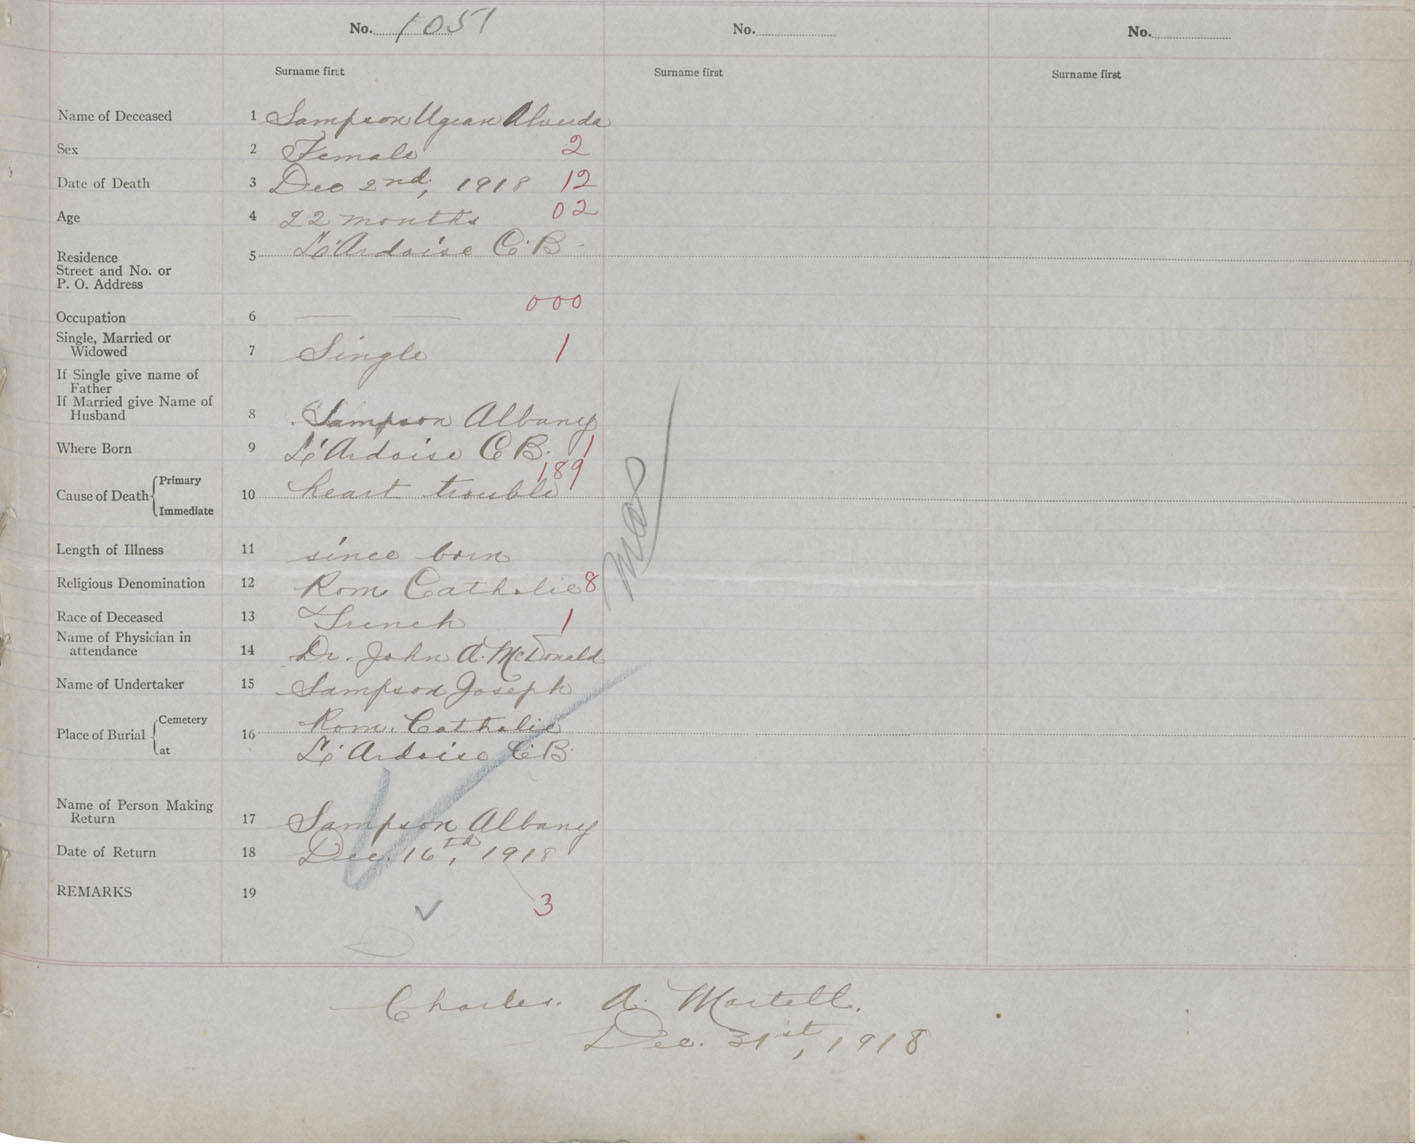 No. 1051 No. No.
Surname first Surname first Surname first
Name of Deceased 1 Sampson Alveda
Sex 2 Female 2
Date of Death 3 Dec 2nd, 1918 12
Age 4 22 months 02
Residence
Street and No. or
P. O. Address 5 L'Ardoise C.B.
000
Occupation 6
Single, Married or
Widowed 7 Single 1
If Single give name of
Father
If Married give Name of
Husband 8 Sampson Albany
Where Born 9 L'Ardoise C.B. 1
189
Cause of Death Primary
Immediate 10 heart trouble
Length of Illness 11 since born
Religious Denomination 12 Rom. Catholic 8
Race of Deceased 13 French 1
Name of Physician in
attendance 14 Dr. John A. McDonald
Name of Undertaker 15 Sampson Joseph
Place of Burial Cemetery
at 16 Rom. Catholic
L'Ardoise C.B.
Name of Person Making
Return 17 Sampson Albany
Date of Return 18 Dec. 16th, 1918
REMARKS 19
3
Charles. A. Martell.
Dec. 31st, 1918